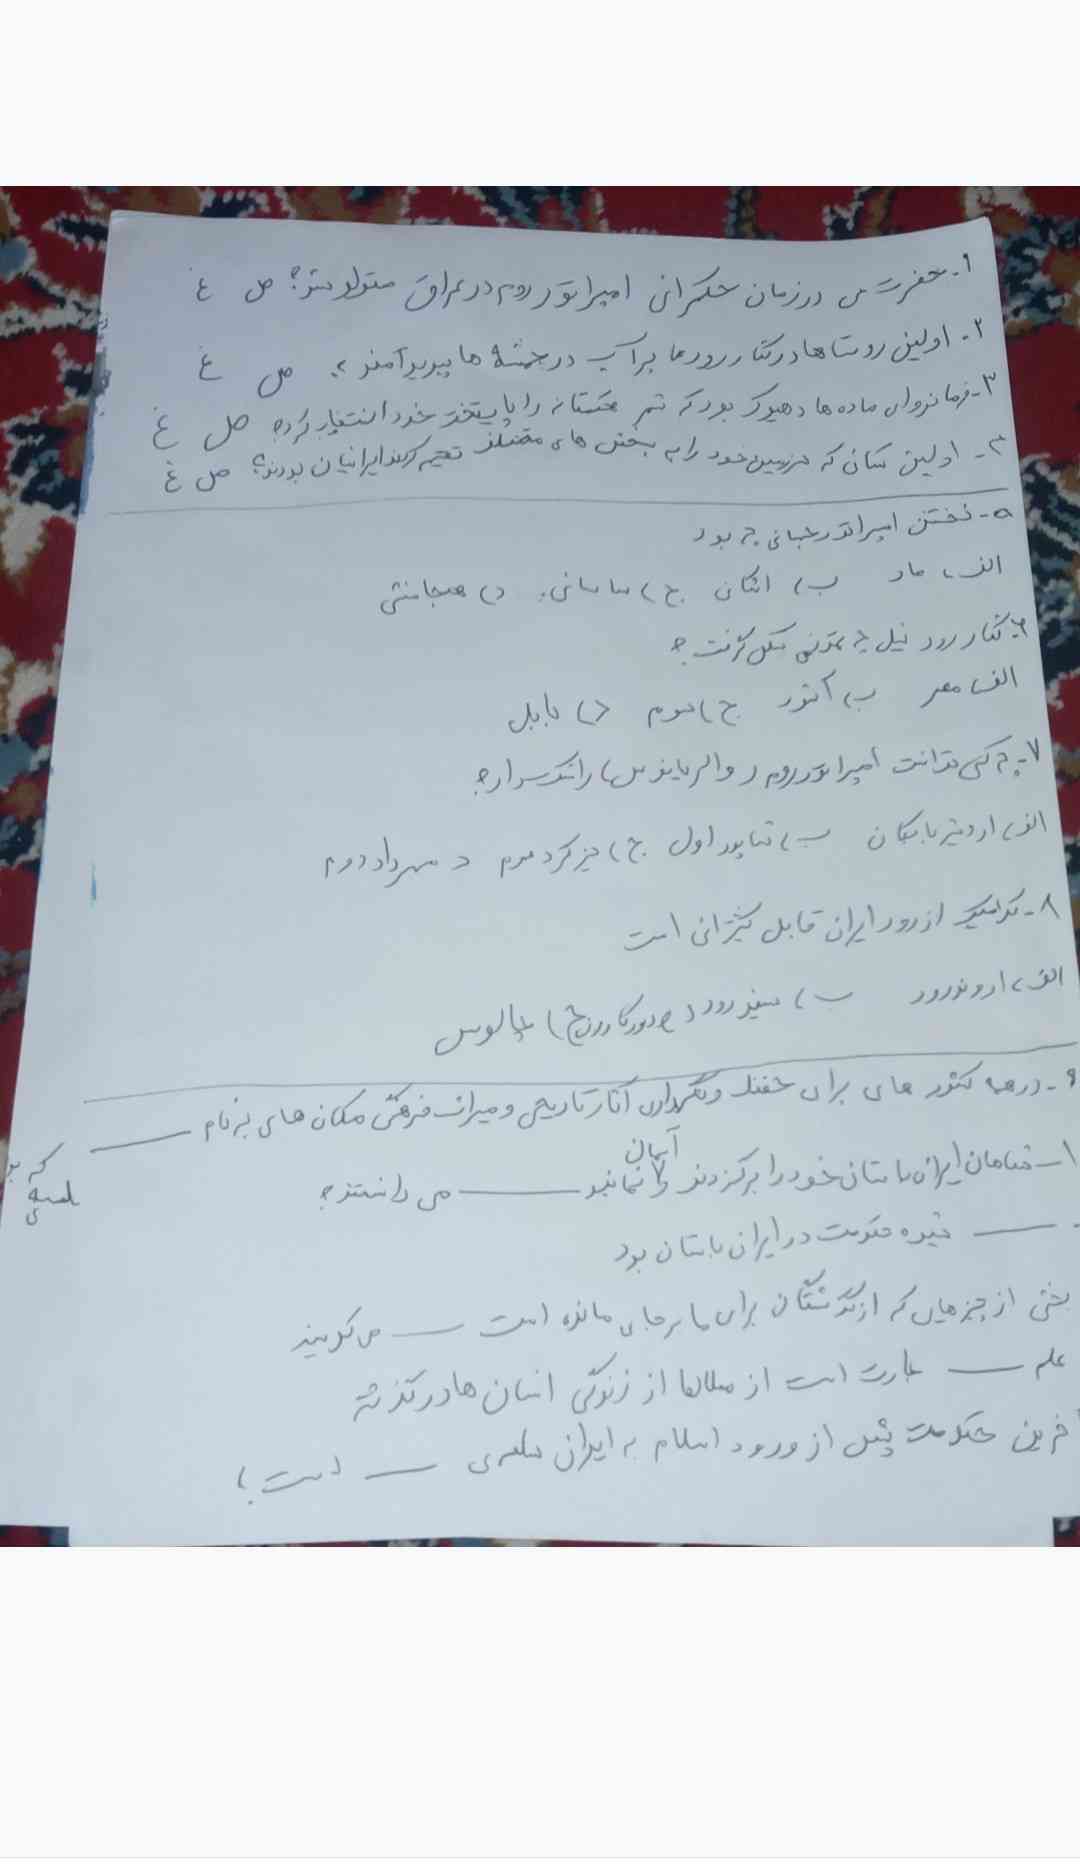 ۱- حضرت در زمان حکمرانی امپراتور روم در عراق متولد شد؟ ص غ
۲- اولین روستاها در کنار رودها پر آب در چشمه ها پدید آمدند. ص غ
۳- فرمانروای ماده ها دهیوک بود که شهر هگمتانه را پایتخت خود انتخاب کرد؟ ص غ
۴- اولین کسانی که سرزمین خود را به بخش های مختلف تقسیم کردند ایرانیان بودند؟ ص غ
۵- نخستین امپراتور جهانی چه بود
الف) ماد ب) اشکانی ج) ساسانی. د) هخامنشی
۶- کنار رود نیل چه تمدنی شکل گرفت؟
الف) مصر ب) آشور ج) روم د) بابل
۷- چه کسی توانست امپراتور روم (والریانوس) را شکست داد؟
الف) اردشیر بابکان ب) شاپور اول ج) یزگرد سوم د مهرداد دوم
۸- کدامیک از رود ایران قابل کشتیرانی است
الف) اروندرود ب) سفیدرود ج) چالوس
۹- در همه کشور های برای حفظ و نگهداری آثار تاریخی و میراث فرهنگی مکان های به نام ــــــ
که
۱- شاهان ایران باستان خود را برگزیده و نماینده ــــــ می دانستند؟
آسمان
ــــــ شیوه حکومت در ایران باستان بود
بخشی از چیزهای که از گذشتگان برای ما برجای مانده است ــــــ می گویند
علم ــــــ عبارت است از مطالعه از زندگی انسان ها در گذشته
آخرین حکومت پیش از ورود اسلام به ایران ــــــ است؟